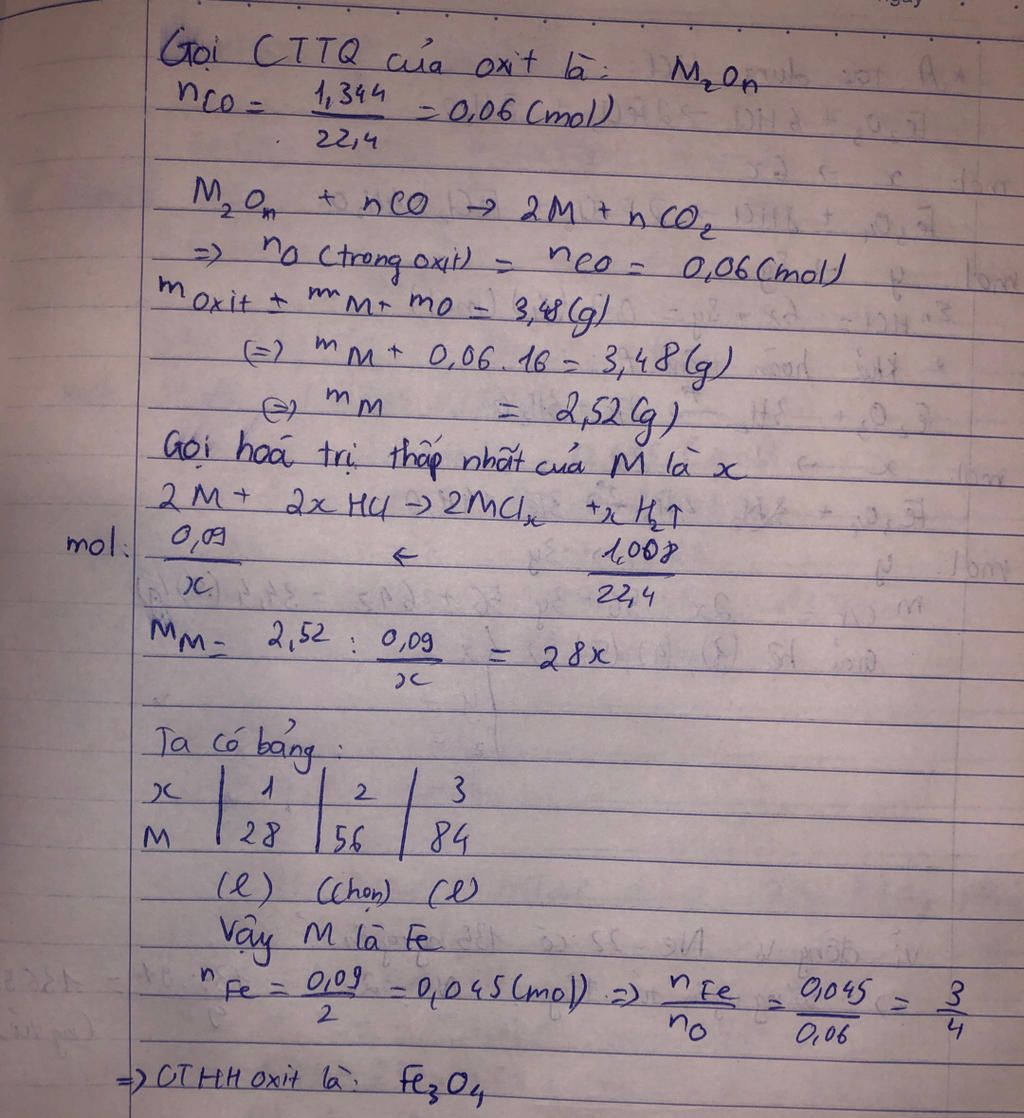 Gọi CTTQ của oxit là: M₂Oₙ
nCO = 1,344 / 22,4 = 0,06 (mol)
M₂Oₙ + nCO → 2M + nCO₂
=> nO (trong oxit) = nCO = 0,06 (mol)
m oxit = mM + mO = 3,48 (g)
(=) mM + 0,06 . 16 = 3,48 (g)
(=) mM = 2,52 (g)
Gọi hoá trị thấp nhất của M là x
2M + 2xHCl → 2MClₓ + xH₂↑
mol: 0,09 / x ← 1,008 / 22,4
MM = 2,52 : 0,09 / x = 28x
Ta có bảng:
x | 1 | 2 | 3
M | 28 | 56 | 84
(l) (chọn) (l)
Vậy M là Fe
nFe = 0,09 / 2 = 0,045 (mol) => nFe / nO = 0,045 / 0,06 = 3 / 4
=> CTHH oxit là: Fe₃O₄